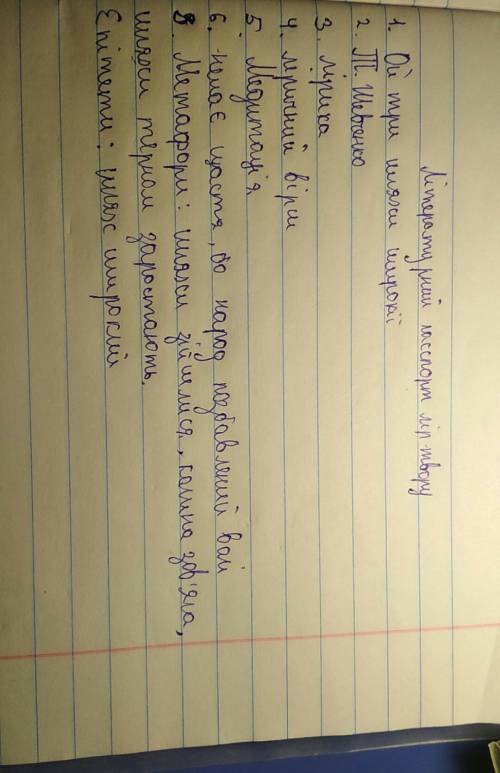 Літературний пасспорт лір. твору
1. Ой три шляхи широкії
2. Т. Шевченко
3. лірика
4. ліричний вірш
5 Медитація
6. Немає щастя, бо народ позбавлений волі
8. Метафори: шляхи зійшлися, калина зов'яла,
шляхи терном заростають.
Епітети: шлях широкий